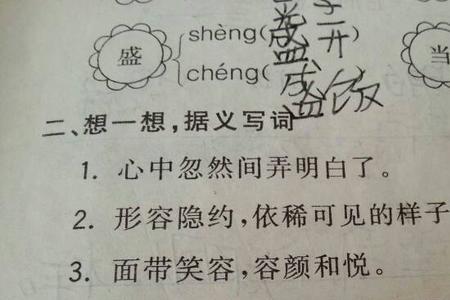 盛 shèng(盛开 当
chéng(盛饭
二、想一想,据义写词
1. 心中忽然间弄明白了。
2. 形容隐约,依稀可见的样子
3. 面带笑容,容颜和悦。